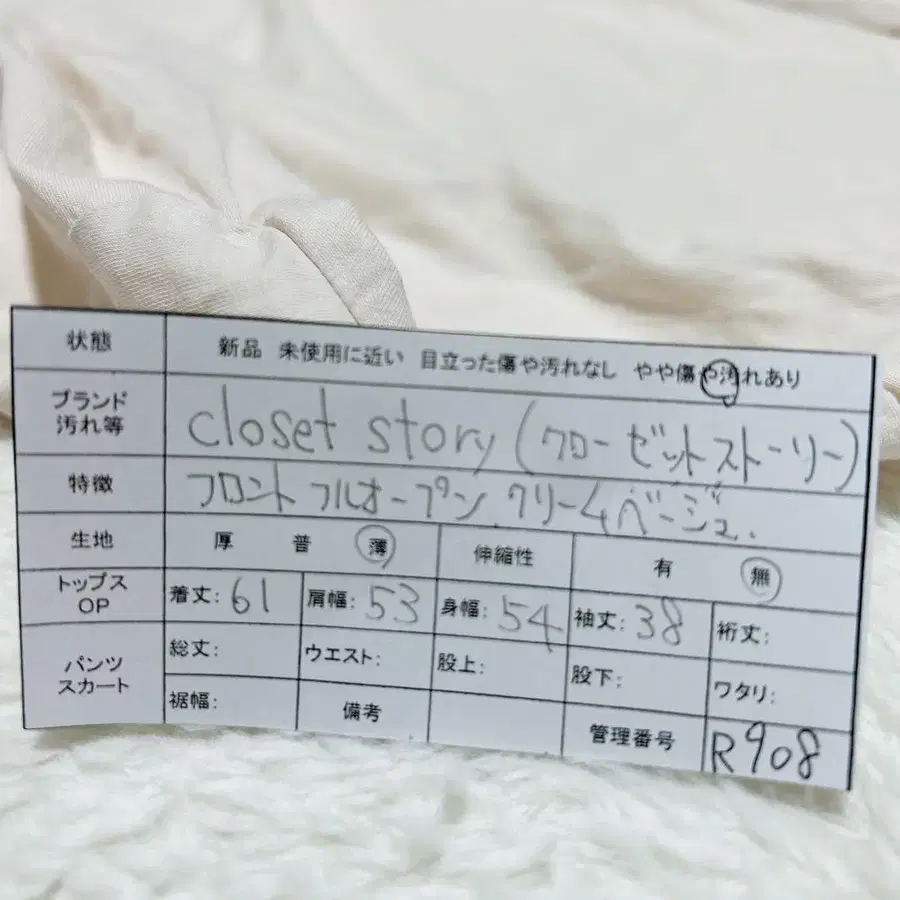 状態 新品 未使用に近い 目立った傷や汚れなし やや傷や汚れあり
ブランド
汚れ等
closet story (クローゼットストーリー)
特徴 フロントフルオープン クリームベージュ..
生地 厚 普 薄 伸縮性 有 無
トップス
OP
着丈: 61 肩幅: 53 身幅: 54 袖丈: 38 裄丈:
パンツ
スカート
総丈: ウエスト: 股上: 股下: ワタリ:
裾幅: 備考 管理番号 R908